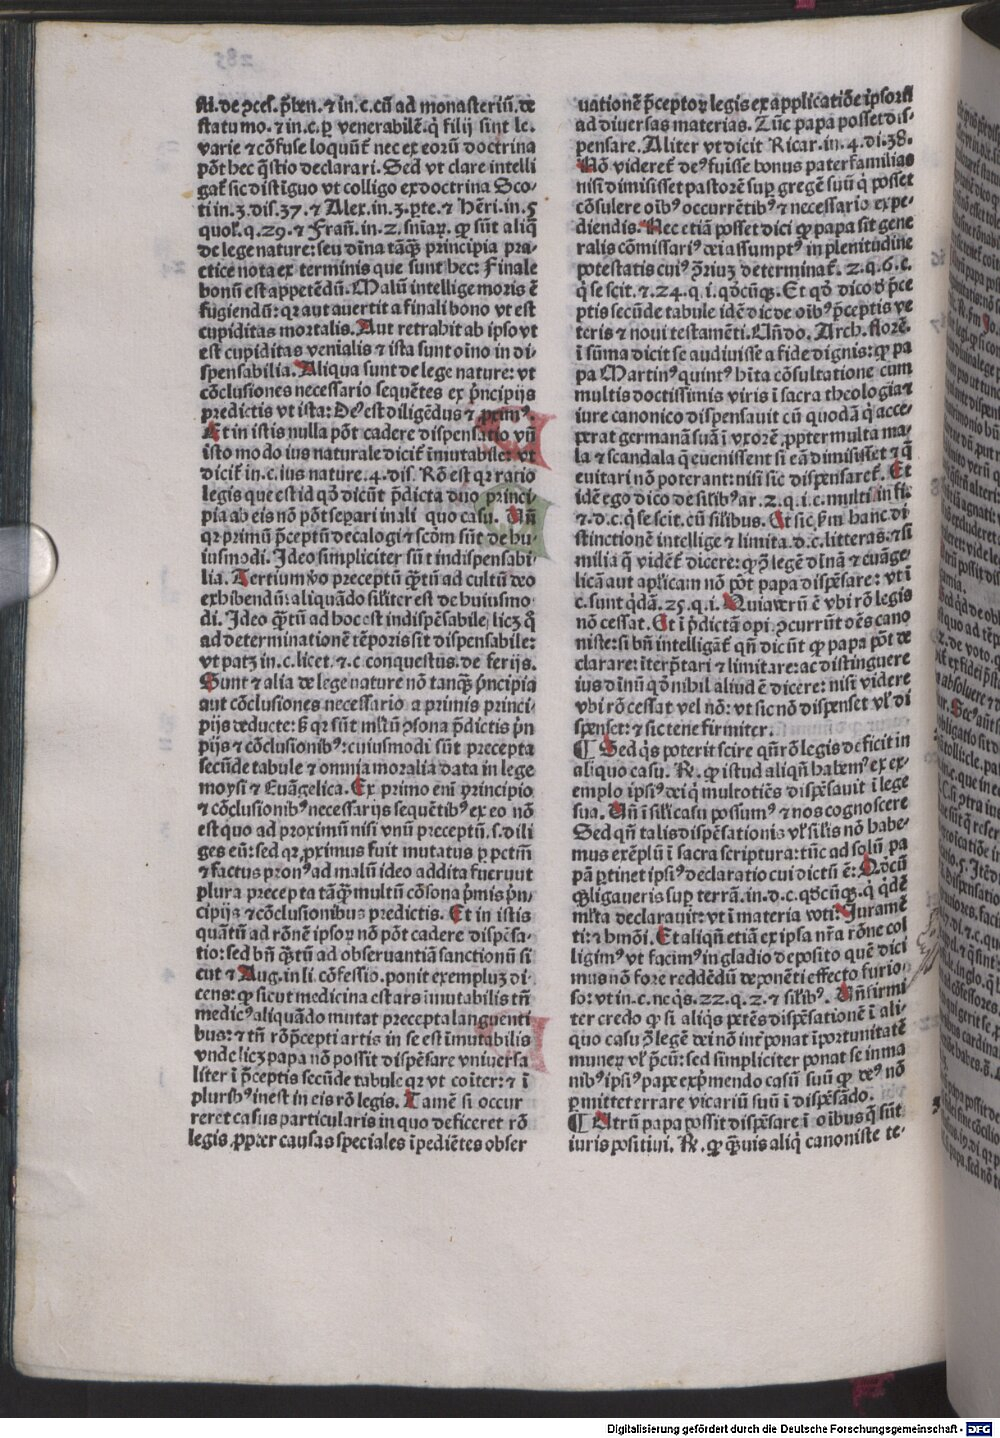 sti. de ꝯces. p̃ben. ⁊ in. c. cũ ad monasteriũ. de
statu mo. ⁊ in. c. ꝑ venerabilẽ. q̇ filij sint le.
varie ⁊ cõfuse loquũt̃ nec ex eorũ doctrina
põt hec q̃stio declarari. Sed vt clare intelli
gat̃ sic distĩguo vt colligo ex doctrina Sco-
ti in. 3. dis. 37. ⁊ Alex. in. 3. ꝑte. ⁊ hẽri. in. 5
quol. q. 29. ⁊ Frañ. in. 2. sniaꝝ. ꝙ sũt aliq̃
de lege nature: seu diña tãq̃ꝫ principia pra-
ctice nota ex terminis que sunt hec: Finale
bonũ est appetẽdũ. Malũ intellige moris ẽ
fugiendũ: qꝛ aut auertit a finali bono vt est
cupiditas mortalis. Aut retrahit ab ipso vt
est cupiditas venialis ⁊ ista sunt oĩno in di-
spensabilia. Aliqua sunt de lege nature: vt
cõclusiones necessario sequẽtes ex p̃ncipijs
predictis vt ista: De⁹ est diligẽdus ⁊ ꝓxim⁹.
Et in istis nulla põt cadere dispensatio vñ
isto modo ius naturale dicit̃ ĩmutabile: vt
dicit̃ in. c. ius nature. 4. dis. Rõ est qꝛ ratio
legis que est id qd̃ dicũt p̃dicta duo princi-
pia ab eis nõ põt separi in ali quo casu. Uñ
qꝛ primũ p̃ceptũ decalogi ⁊ scḋm sũt de hu-
iusmodi. Ideo simpliciter sũt indispensabi-
lia. Tertium v̊o preceptũ q̃ꝫtũ ad cultũ deo
exhibendũ: aliquãdo siliter est de huiusmo
di. Ideo q̃ꝫtũ ad hoc est indispẽsabile, licꝫ q̊
ad determinationẽ tẽporis sit dispensabile:
vt patꝫ in. c. licet. ⁊. c. conquestus. de ferijs.
Sunt ⁊ alia de lege nature nõ tanq̃ꝫ p̃ncipia
aut cõclusiones necessario a primis princi-
pijs deducte: sꝫ qꝛ sũt mltũ ꝯsona p̃dictis p̃n
pijs ⁊ cõclusionib⁹: cuiusmodi sũt precepta
secũde tabule ⁊ omnia moralia data in lege
moysi ⁊ Euãgelica. Ex primo eñi principio
⁊ cõclusionib⁹ necessarijs sequẽtib⁹ ex eo nõ
est quo ad proximũ nisi vnũ preceptũ. s. dili
ges eũ: sed qꝛ ꝓximus fuit mutatus ꝑ pctm̃
⁊ factus pron⁹ ad malũ ideo addita fuerunt
plura precepta tãq̃ꝫ multũ cõsona p̃mis p̃n-
cipijs ⁊ cõclusionibus predictis. Et in istis
quãtũ ad rõnẽ ipsoꝝ nõ põt cadere dispẽsa-
tio: sed bñ q̃ꝫtũ ad obseruantiã sanctionũ si
cut ⁊ Aug. in li. cõfessio. ponit exempluꝫ di-
cens: ꝙ sicut medicina est ars ĩmutabilis tñ
medic⁹ aliquãdo mutat precepta languenti
bus: ⁊ tñ rõ p̃cepti artis in se est ĩmutabilis
vnde licꝫ papa nõ possit dispẽsare vniuersa
liter ĩ p̃ceptis secũde tabule qꝛ vt cõiter: ⁊ ĩ
plurib⁹ inest in eis rõ legis. Tamẽ si occur
reret casus particularis in quo deficeret rõ
legis ꝓpter causas speciales ĩpediẽtes obser
uationẽ p̃ceptoꝝ legis ex applicatiõe ipsorũ
ad diuersas materias. Tũc papa posset dis-
pensare. Aliter vt dicit Ricar. in. 4. di. 38.
Nõ videret̃ de⁹ fuisse bonus paterfamilias
nisi dimisisset pastorẽ suꝑ gregẽ suũ q̇ posset
cõsulere oĩb⁹ occurrẽtib⁹ ⁊ necessario expe-
diendis. Nec etiã posset dici ꝙ papa sit gene
ralis cõmissari⁹ dei assumpt⁹ in plenitudinẽ
potestatis cui⁹ p̃riuꝫ determinat̃. 2. q. 6. c.
q̇ se scit. ⁊. 24. q. i. qd̃cũqꝫ. Et qd̃ dico de p̃ce
ptis secũde tabule idẽ dic de oĩb⁹ p̃ceptis ve
teris ⁊ noui testamẽti. Uñ do. Arch. florẽ.
ĩ sũma dicit se audiuisse a fide dignis: ꝙ pa
pa Martin⁹ quint⁹ hĩta cõsultatione cum
multis doctissimis viris ĩ sacra theologia ⁊
iure canonico dispensauit cũ quodã q̇ acce-
perat germanã suã ĩ vxorẽ, ꝓpter multa ma-
la ⁊ scandala q̃ euenissent si eã dimisisset ⁊ q̃
euitari nõ poterant: nisi sic dispensaret̃. Et
idẽ ego dico de silib⁹ ar. 2. q. i. c. multi in fi.
⁊. d. c. q̇ se scit. cũ silibus. Et sic ẜm hanc di-
stinctionẽ intellige ⁊ limita. d. c. litteras. ⁊ si
milia q̃ vidẽt̃ dicere: ꝙ p̃ legẽ diñã ⁊ euãge-
licã aut aplicam nõ põt papa dispẽsare: vt ĩ
c. sunt q̇dã. 25. q. i. Quia verũ ẽ vbi rõ legis
nõ cessat. Et ĩ p̃dictã opi. ꝯcurrũt oẽs cano
niste: si bñ intelligãt̃ qñ dicũt ꝙ papa põt de
clarare: ĩterp̃tari ⁊ limitare: ac distinguere
ius diñũ qd̃ nihil aliud ẽ dicere: nisi videre
vbi rõ cessat vel nõ: vt sic nõ dispenset vl̃ di
spẽset: ⁊ sic tene firmiter.
¶ Sed q̇s poterit scire qñ rõ legis deficit in
aliquo casu. R̃. ꝙ istud aliqñ habem⁹ ex ex-
emplo ipsi⁹ dei q̇ multotiẽs dispẽsauit ĩ lege
sua. Uñ ĩ sili casu possum⁹ ⁊ nos cognoscere
Sed qñ talis dispẽsationis vl̃ silis nõ habe-
mus exẽplũ ĩ sacra scriptura: tũc ad solũ pa
pã ꝑtinet ipsi⁹ declaratio cui dictũ ẽ: Qd̃cũ
qꝫ ligaueris suꝑ terrã. in. d. c. qd̃cũqꝫ. q̇ q̇dẽ
mlta declarauit: vt ĩ materia voti: Juramẽ
ti: ⁊ hmõi. Et aliqñ etiã ex ipsa nr̃a rõne col
ligim⁹ vt facim⁹ in gladio deposito quẽ dici
mus nõ fore reddẽdũ deponẽti effecto furio
so: vt in. c. ne q̇s. 22. q. 2. ⁊ silib⁹. Uñ firmi
ter credo ꝙ si aliq̇s petẽs dispẽsationẽ ĩ ali-
quo casu p̃ legẽ dei nõ int̃ponat ĩportunitatẽ
munerꝝ vl̃ p̃cũ: sed simpliciter ponat se in ma
nib⁹ ipsi⁹ pape exp̃mendo casũ suũ ꝙ de⁹ nõ
ꝑmittet errare vicariũ suũ ĩ dispẽsãdo.
¶ Utrũ papa possit dispẽsare ĩ oĩbus q̃ sũt
iuris positiui. R̃. ꝙ q̃ꝫuis aliq̇ canoniste te-
Digitalisierung gefördert durch die Deutsche Forschungsgemeinschaft - DFG